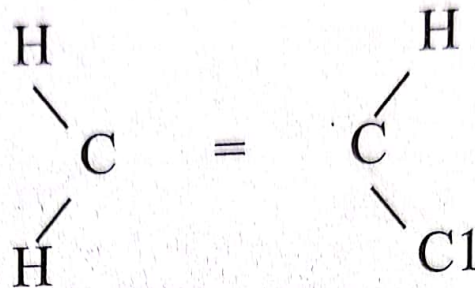 H H
C = C
H Cl